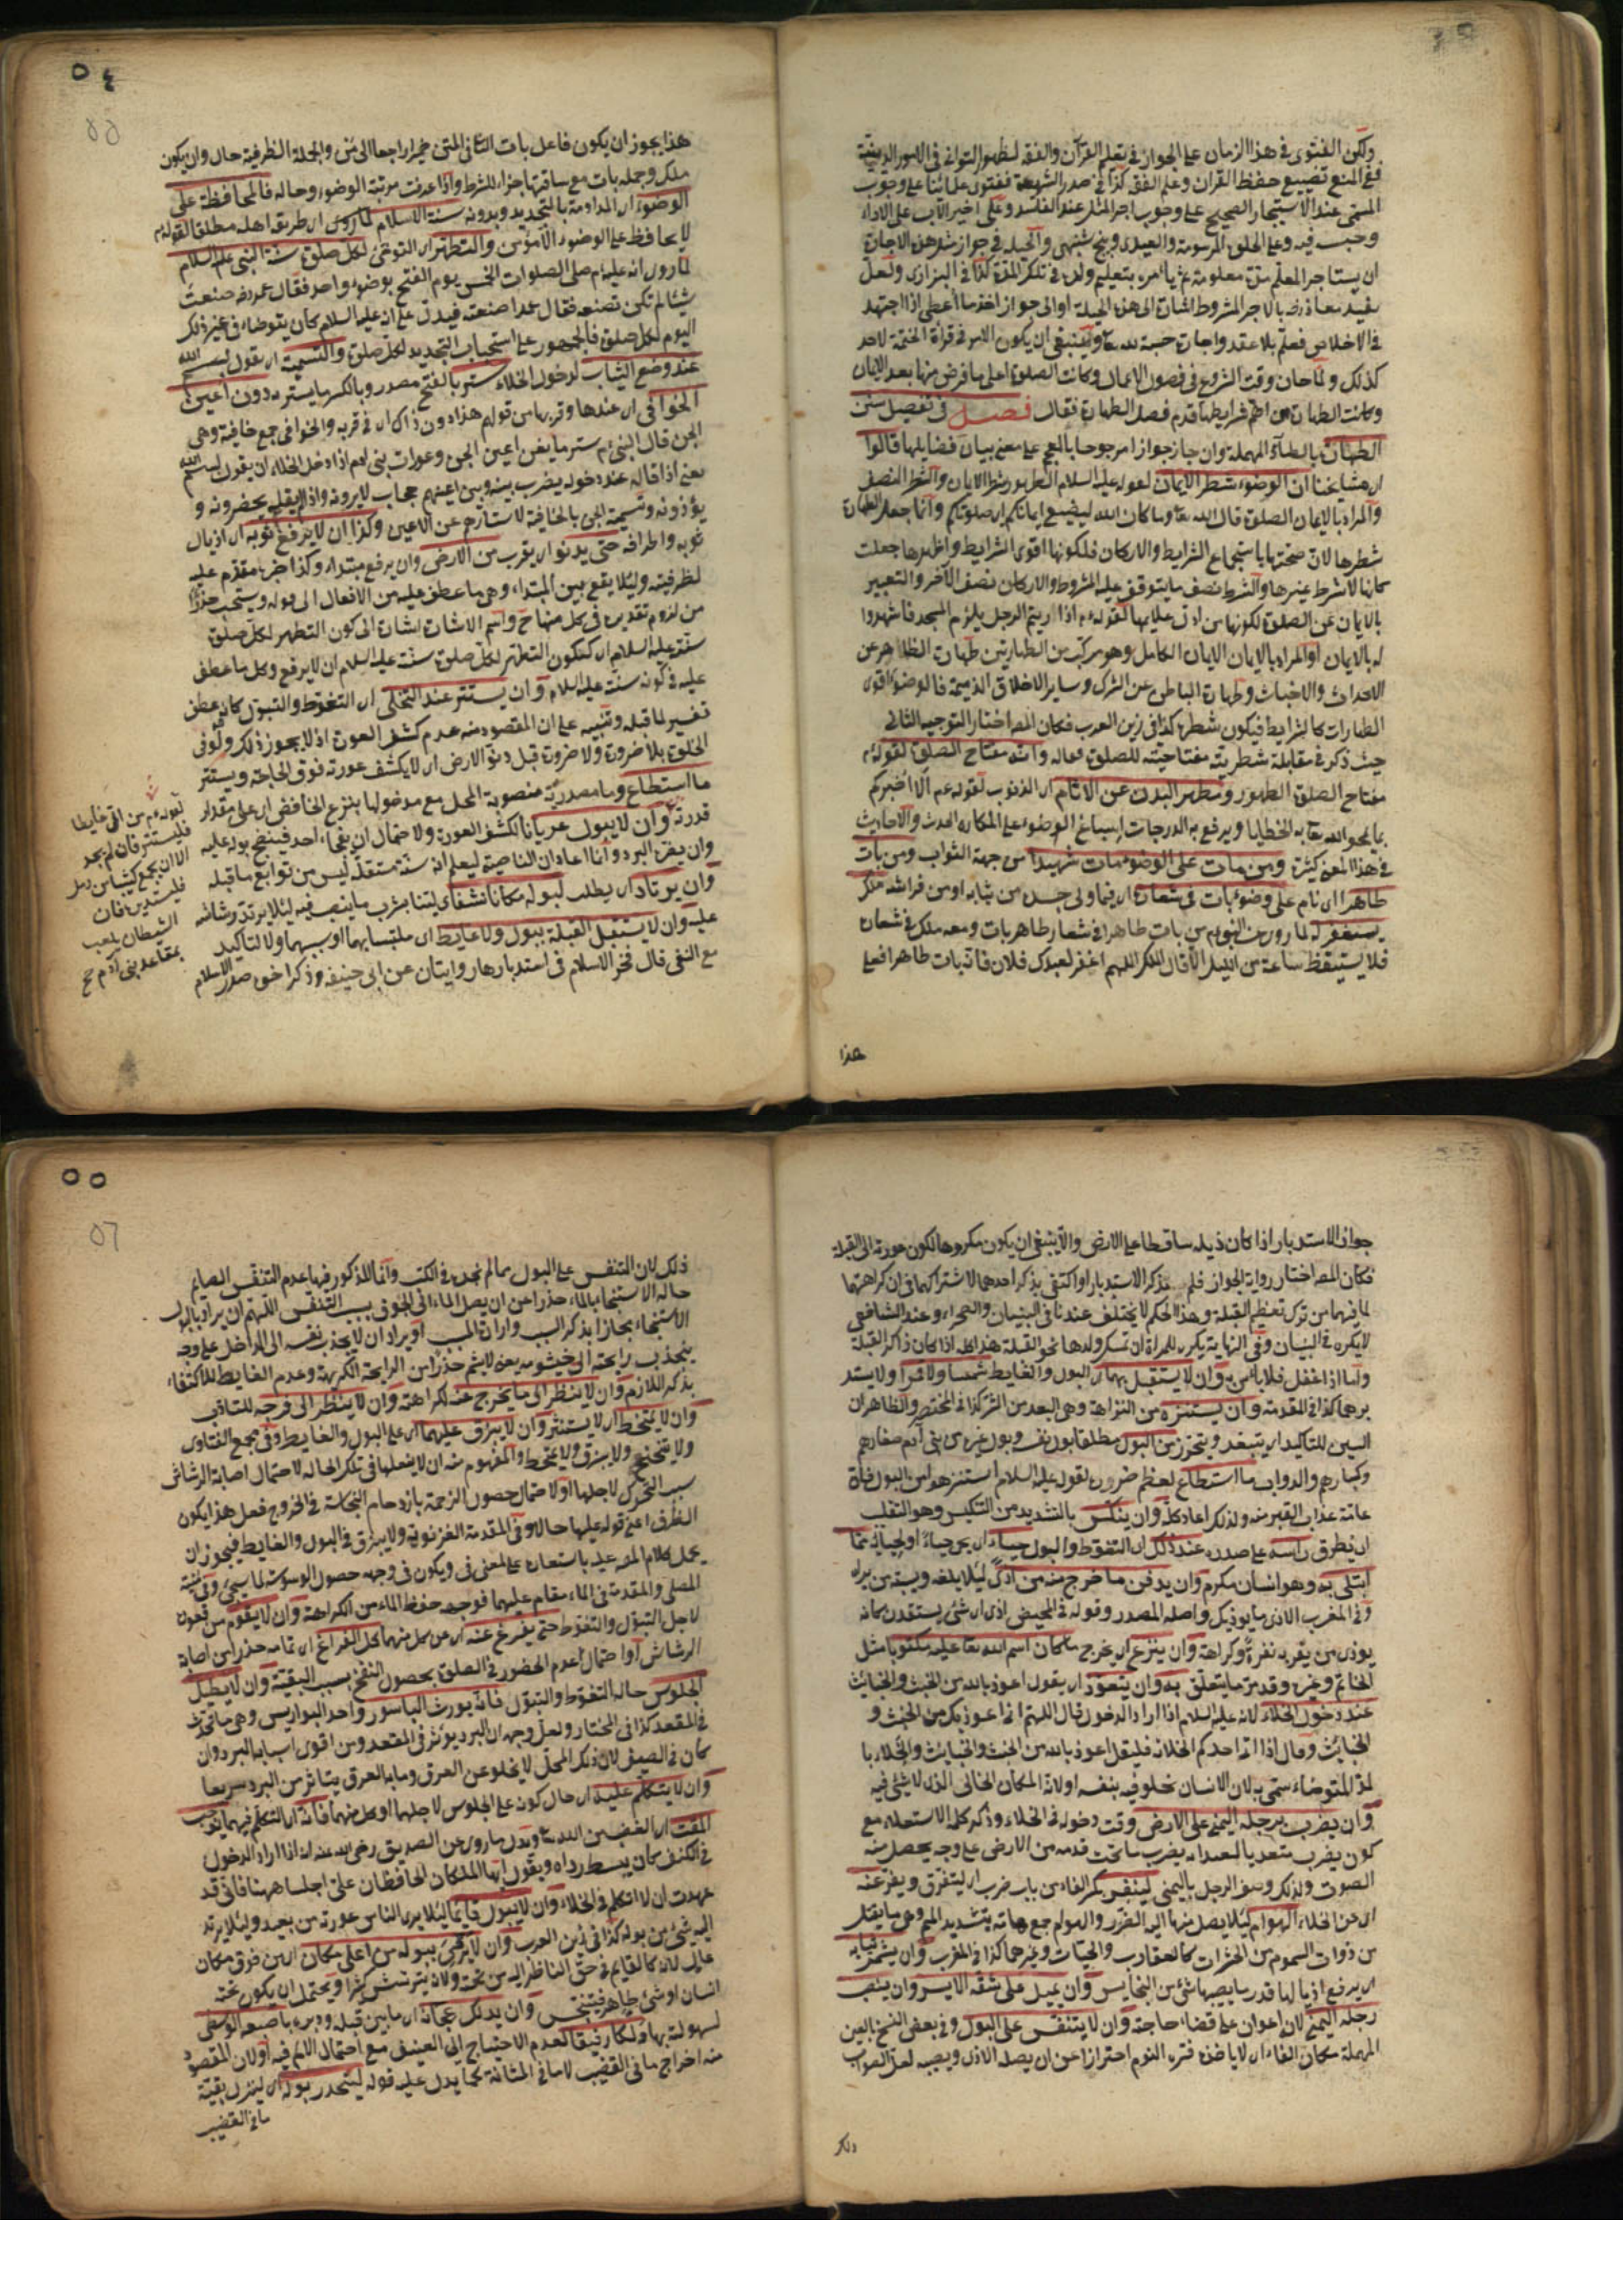 ولكن الفتوى في هذا الزمان على الجواز في تعليم القرآن والفقه لظهور التواني في الامور الدينية
ففي المنع تضييع حفظ القران وعلم الفقه كذا في صدر الشريعة ففتوى علمائنا على وجوب
المسمى عند الاستيجار الصحيح على وجوب اجر المثل عند الفاسد وعلى اخير الاب على الاداء
وجبت فيه وعلى الحلق المرسومة والعيدى وپنج شنبهى والحيلة في جواز مثل هذه الاجارة
ان يستاجر المعلم مدة معلومة ثم يامره بتعليم ولده في تلك المدة كذا في البزازى ولعل
كذلك ولما حان وقت الشروع في فصول الاعمال وكانت الصلوة اعلى ما فرض منها بعد الايمان
وكانت الطهارة من اهم شرايطها قدم فصل الطهارة فقال فصل في تفصيل سنن
الطهارة بالطاء المهملة وان جاز جوازا مرجوحا بالمعجم على معنى بيان فضايلها قالوا
اى مشايخنا ان الوضوء شطر الايمان لقوله عليه السلام الطهور شطر الايمان والشطر النصف
والمراد بالايمان الصلوة قال الله تعا وما كان الله ليضيع ايمانكم اى صلوتكم وانما جعل الطهارة
شطرها لان صحتها باستجماع الشرايط والاركان فلكونها اقوى الشرايط واظهرها جعلت
كانها لا شرط غيرها والشرط نصف ما يتوقف عليه المشروط والاركان نصف الآخر والتعبير
بالايمان عن الصلوة لكونها من ادل علايمها لقوله عم اذا رايتم الرجل يلزم المسجد فاشهدوا
له بالايمان او المراد بالايمان الايمان الكامل وهو مركب من الطهارتين طهارة الظاهر عن
الاحداث والاخباث وطهارة الباطن عن الشرك وساير الاخلاق الذميمة فالوضوء اقوى
الطهارات كالشرايط فيكون شطره كذا في زين العرب فكان المصـ اختار التوجيه الثانى
حيث ذكر في مقابلة شطريته مفتاحيته للصلوة فقاله وانه مفتاح الصلوة لقوله عم
مفتاح الصلوة الطهور ومطهر البدن عن الاثام اى الذنوب لقوله عم الا اخبركم
بما يمحو الله تعا به الخطايا ويرفع به الدرجات اسباغ الوضوء على المكاره الحدث والاحاديث
في هذا المعنى كثيرة ومن مات على الوضوء مات شهيدا من جهة الثواب ومن بات
طاهرا اى نام على وضوء بات في شعاره اى فيما ولى جسده من ثيابه او من فراشه ملك
يستغفر له لما روى عن النبى عم من بات طاهرا في شعار طاهر بات ومعه ملك في شعاره
فلا يستيقظ ساعة من الليل الا قال الملك اللهم اغفر لعبدك فلان فانه بات طاهرا فعلى
هذا
٥٤
55
هذا يجوز ان يكون فاعل بات الثانى المتن ضميرا راجعا الى من والجملة الظرفية حال وان يكون
ملك وجملة بات مع ساقتها جزاء للشرط واذا عرفت مرتبة الوضوء وحاله فالمحافظة على
الوضوء اى المداومة بالتجديد وبدونه سنة الاسلام لما روى اى طريق اهله مطلقا لقوله عم
لا يحافظ على الوضوء الا مؤمن والتطهر اى التوضى لكل صلوة سنة النبى عليه السلام
لما روى انه عليه م صلى الصلوات الخمس يوم الفتح بوضوء واحد فقال عمر رضه صنعت
شيئا لم تكن تصنعه فقال عمدا صنعته فيدل على انه عليه السلام كان يتوضاء في غير ذلك
اليوم لكل صلوة فالجمهور على استحباب التجديد لكل صلوة والتسمية اى يقول بسم الله
عند وضع الثياب لدخول الخلاء ستر بالفتح مصدر وبالكسر ما يستر به دون اعين
الخوافى اى عندها وقربها من قولهم هذا دون ذاك اى في قربه والخوافى جمع خافية وهى
الجن قال النبى م ستر ما بين اعين الجن وعورات بنى ادم اذا دخل الخلاء ان يقول بسم الله
يعنى اذا قاله عند دخوله يضرب بينه وبين اعينهم حجاب لا يرونه واذا لم يقل به يحضرونه و
يؤذونه وتسمية الجن بالخافية لاستتارهم عن الاعين وكذا ان لا يرفع ثوبه اى اذيال
ثوبه واطرافه حتى يدنو اى يقرب من الارض وان يرفع مبتداء وكذا خبره مقدم عليه
لظرفيته ولئلا يقع بين المبتداء وهى ما عطف عليه من الافعال الى قوله ويستحب حذرا
من لزوم تقديره في كل منها ح واسم الاشارة اشارة الى كون التطهر لكل صلوة
سنة عليه السلام اى ككون التطهر لكل صلوة سنة عليه السلام ان لا يرفع وكل ما عطف
عليه في كونه سنة عليه السلام وان يستتر عند التخلى اى التغوط والتبول كانه عطف
تفسير لما قبله وتنبيه على ان المقصود منه عدم كشف العورة اذ لا يجوز ذلك ولو في
الخلوة بلا ضرورة ولا ضرورة قبل دنو الارض اى لا يكشف عورته فوق الحاجة ويستتر
ما استطاع وما مصدرية منصوبة المحل مع مدخولها بنزع الخافض اى على مقدار
قدرته وان لا يبول عريانا لكشف العورة ولاحتمال ان يفجاءه احد فينضح بوله عليه
وان يضره البرد وانما اعاد ان الناصبة ليعلم انه سنة مستقلة ليس من توابع ما قبله
وان يرتاد اى يطلب لبوله مكانا نشفا اى لينا يشرب ما ينصب فيه لئلا يرتد رشاشه
عليه وان لا يستقبل القبلة ببول ولا غايط اى ملتبسا بهما او بسببهما ولا لتاكيد
مع النفى قال فخر الاسلام في استدبارها روايتان عن ابى حنيفه وذكر اخوه صدر الاسلام
لقوله م من اتى غايطا
فليستتر فان لم يجد
الا ان يجمع كثيبا من رمل
فليستدبره فان
الشيطان يلعب
بمقاعد بنى آدم صح
جواز الاستدبار اذا كان ذيله ساقطا على الارض والا ينبغى ان يكون مكروها لكون عورته الى القبلة
فكان المصـ اختار رواية الجواز فلم يذكر الاستدبار او اكتفى بذكر احدهما لاشتراكهما في ان كراهتهما
لما فيهما من ترك تعظيم القبلة وهذا الحكم لا يختلف عندنا في البنيان والصحراء وعند الشافعى
لا يكره في البنيان وفي النهاية يكره للمراة ان تمسك ولدها نحو القبلة هذا كله اذا كان ذاكر القبلة
واما اذا غفل فلا باس به وان لا يستقبل بهما اى البول والغايط شمسا ولا قمرا ولا يستد
برهما كذا في المقدمة وان يستنزه من النزاهة وهى البعد من الشر كذا في المختصر والظاهر ان
السين للتاكيد اى يتبعد ويتحرز من البول مطلقا بول نفسه وبول غيره من بنى آدم صغارهم
وكبارهم والدواب ما استطاع لعظم ضرره لقوله عليه السلام استنزهوا من البول فان
عامة عذاب القبر منه ولذلك اعاد كلمة وان ينكس بالتشديد من التنكيس وهو التقلب
اى يطرق راسه على صدره عند ذلك اى التغوط والبول حياء اى يرى حياء او لحيائه مما
ابتلى به وهو انسان مكرم وان يدفن ما خرج منه من اذى لئلا يلغه ويسته من يراه
وفي المغرب الاذى ما يوذيك واصله المصدر وقوله في المحيض اذى اى شئ يستقذر كانه
يوذى من يقربه نفرة وكراهة وان ينزع اى يخرج ما كان اسم الله تعا عليه مكتوبا مثل
الخاتم وغيره وقد مر ما يتعلق به وان يتعوذ اى يقول اعوذ بالله من الخبث والخبائث
عند دخول الخلاء لانه عليه السلام اذا اراد الدخول قال اللهم انى اعوذ بك من الخبث و
الخبائث وقال اذا اتى احدكم الخلاء فليقل اعوذ بالله من الخبث والخبائث والخلاء با
لمد المتوضاء سمى به لان الانسان يخلو فيه بنفسه او لانه المكان الخالى الذى لا شئ فيه
وان يضرب برجله اليمنى على الارض وقت دخوله في الخلاء وذكر كلمة الاستعلاء مع
كون يضرب متعديا لعله اراد يضرب ما تحت قدمه من الارض على وجه يحصل منه
الصوت ولذلك وصف الرجل باليمنى لينفر بكسر الفاء من باب ضرب اى ليتفرق ويفر عنه
اى عن الخلاء الهوام لئلا يصل منها اليه الضرر والهوام جمع هامة بتشديد الميم وهى ما يقتل
من ذوات السموم من الحشرات كالعقارب والحيات وغيرهما كذا في المغرب وان يشمر ثيابه
اى يرفع اذيالها قدر ما يصيبها شئ من النجايس وان يميل على شقه الايسر وان ينصب
رجله اليمنى لانه اعوان على قضاء حاجته وان لا يتنفس على البول وفي بعض النسخ بالعين
المهملة مكان الفاء اى لا ياخذه فترة النوم احترازا عن ان يصل الاذى ويصيبه لعل الصواب
ذلك
٥٥
56
ذلك لان التنفس على البول مما لم نجده في الكتب وانما المذكور فيها عدم التنفس الصايم
حالة الاستنجاء بالماء حذرا عن ان يصل الماء الى الجوف بسبب التنفس اللهم ان يراد بالبول
الاستنجاء مجازا بذكر السبب وارادة المسبب او يراد ان لا يجذب نفسه الى الداخل على وجه
ينجذب رايحته الى خيشومه يعنى لا يشم حذرا من الرايحة الكريهة وعدم الغايط للاكتفاء
بذكر اللازم وان لا ينظر الى ما يخرج عنه لكراهته وان لا ينظر الى فرجه للتادب
وان لا يمتخط اى لا يستنثر وان لا يبزق عليهما اى على البول والغايط وفي مجمع الفتاوى
ولا يتنحنح ولا يبزق ولا يمتخط والمفهوم منه ان لا يفعلها في تلك الحالة لاحتمال اصابة الرشاش
بسبب التحرك لاجلها او لاحتمال حصول الزحمة بازدحام النجاسة في الخروج فعلى هذا يكون
الظرف اعنى قوله عليهما حالا وفي المقدمة الغزنوية ولا يبزق في البول والغايط فيجوز ان
يحمل كلام المصـ عليه باستعارة على لمعنى في ويكون في وجهه حصول الوسوسة لما سيجئ وفي منية
المصلى والمقدمة في الماء مقام عليهما فوجهه حفظ الماء من الكراهة وان لا يقوم من قعوده
لاجل التبول والتغوط حتى يفرغ عنه اى عن كل منهما كل الفراغ اى تمامه حذرا من اصابة
الرشاش او احتمال عدم الحضور في الصلوة بحصول النفخ بسبب البقية وان لا يطيل
الجلوس حالة التغوط والتبول فانه يورث الباسور واحد البواريس وهى ما تحدث
في المقعد كذا في المختار ولعل وجهه ان البرد يوثر في المقعد ومن اقوى اسبابه البرد وان
كان في الصيف لان ذلك المحل لا يخلو عن العرق وما به العرق يتاثر من البرد سريعا
وان لا يتكلم عليه اى حال كونه على الجلوس لاجلهما او كل منهما فانه اى التكلم فيهما يوجب
المقت اى الغضب من الله تعا ويدل ما روى عن الصديق رضى الله عنه انه اذا اراد الدخول
في الكنف كان يبسط رداه ويقول ايها الملكان الحافظان على اجلسا ههنا فانى قد
عهدت ان لا اتكلم في الخلاء وان لا يبول قايما لئلا يرى الناس عورته من بعيد ولئلا يرتد
اليه شئ من بوله كذا في زين العرب وان لا يرمى ببوله من اعلى مكان اى من فوق مكان
عال لانه كالقايم في حق الناظر اليه من تحته ولانه يترشش كثيرا ويحتمل ان يكون تحته
انسان او شئ طاهر فيتنجس وان يدلك عجانه اى ما بين قبله ودبره باصبعه الوسطى
لسهولة بها دلكا رفيقا لعدم الاحتياج الى العنيف مع احتمال الالم فيه او لان المقصود
منه اخراج ما في القضيب لا ما في المثانة كما يدل عليه قوله ليتحدر بوله اى لينزل بقية
ما في القضيب